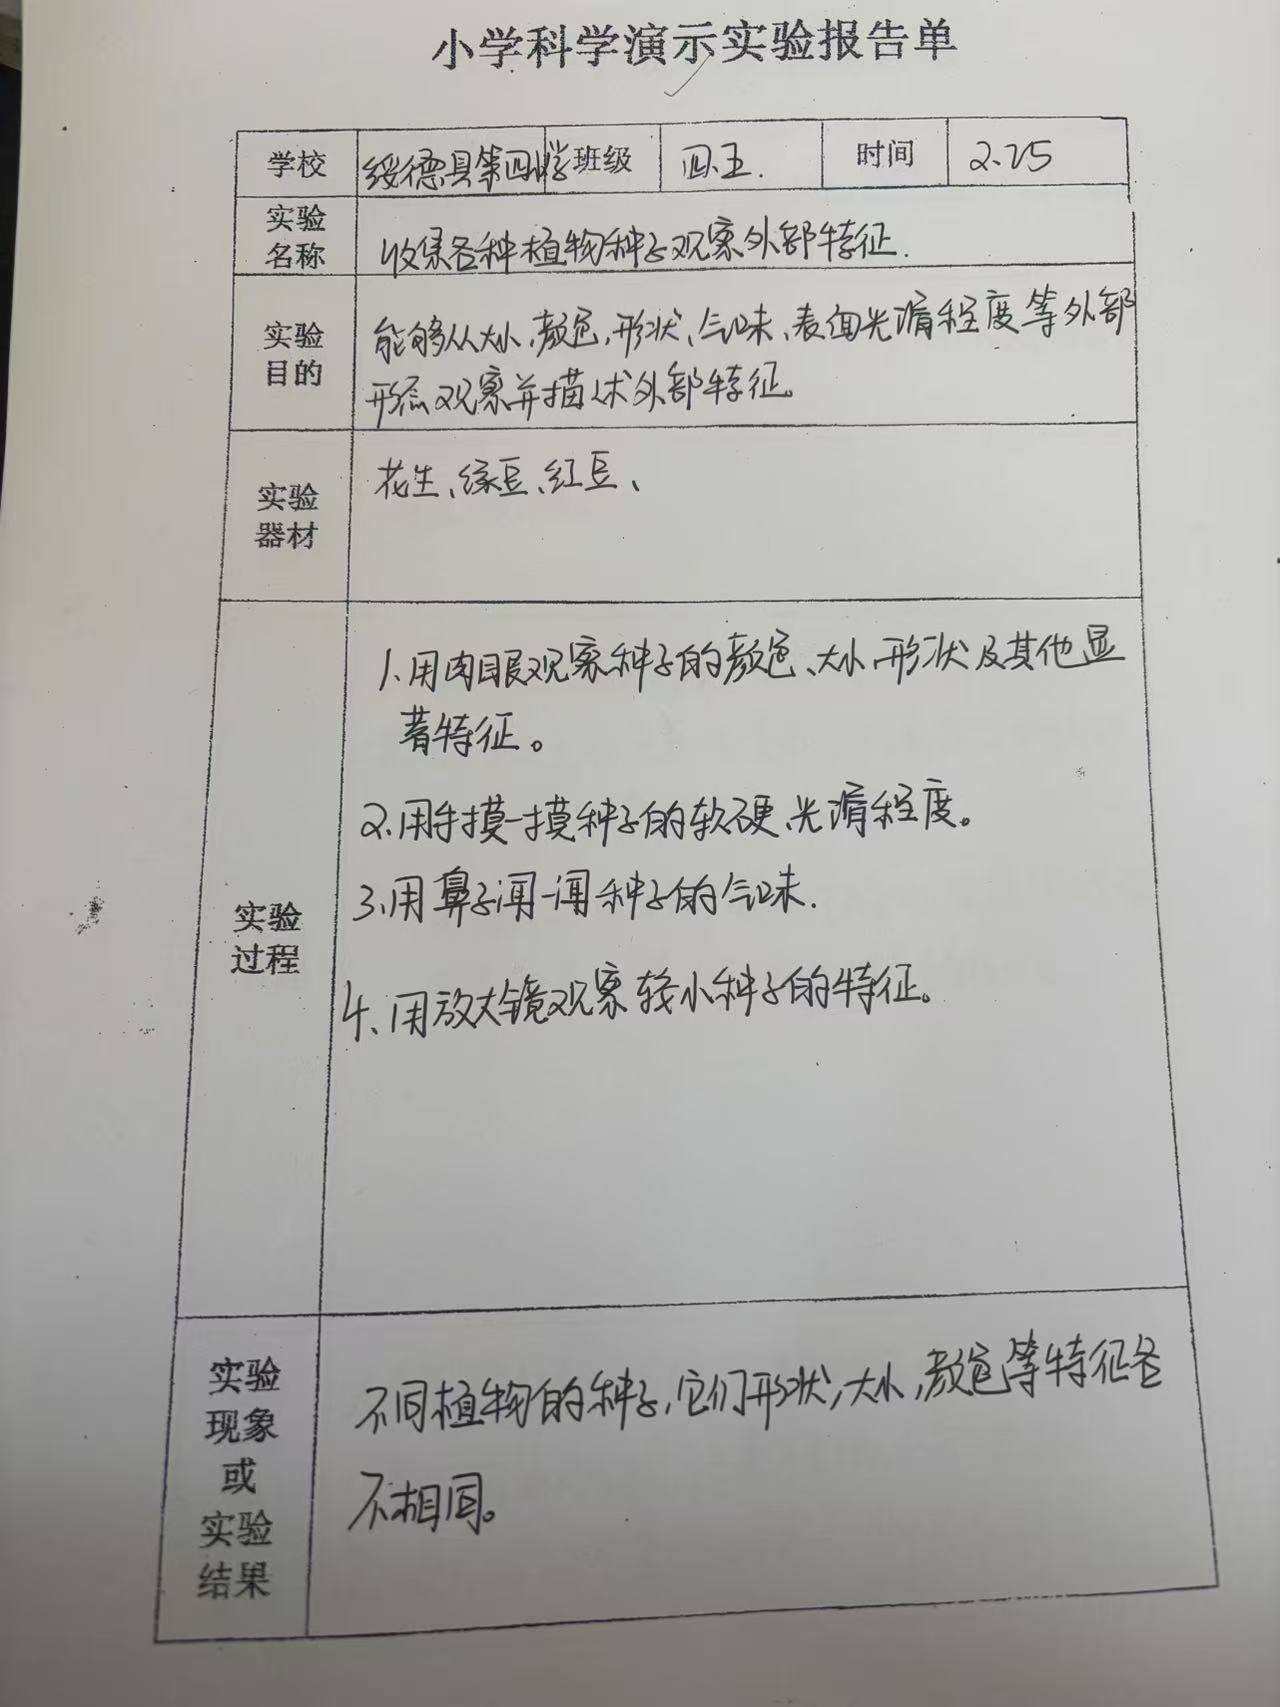 小学科学演示实验报告单
学校 绥德县第四小学 班级 四.五. 时间 2.25
实验名称 收集各种植物种子观察外部特征.
实验目的 能够从大小、颜色,形状、气味、表面光滑程度等外部
形态观察并描述外部特征。
实验器材 花生、绿豆、红豆、
实验过程
1.用肉眼观察种子的颜色、大小、形状及其他显
著特征。
2.用手摸一摸种子的软硬、光滑程度。
3.用鼻子闻一闻种子的气味.
4.用放大镜观察较小种子的特征。
实验现象或实验结果
不同植物的种子,它们形状,大小,颜色等特征各
不相同。